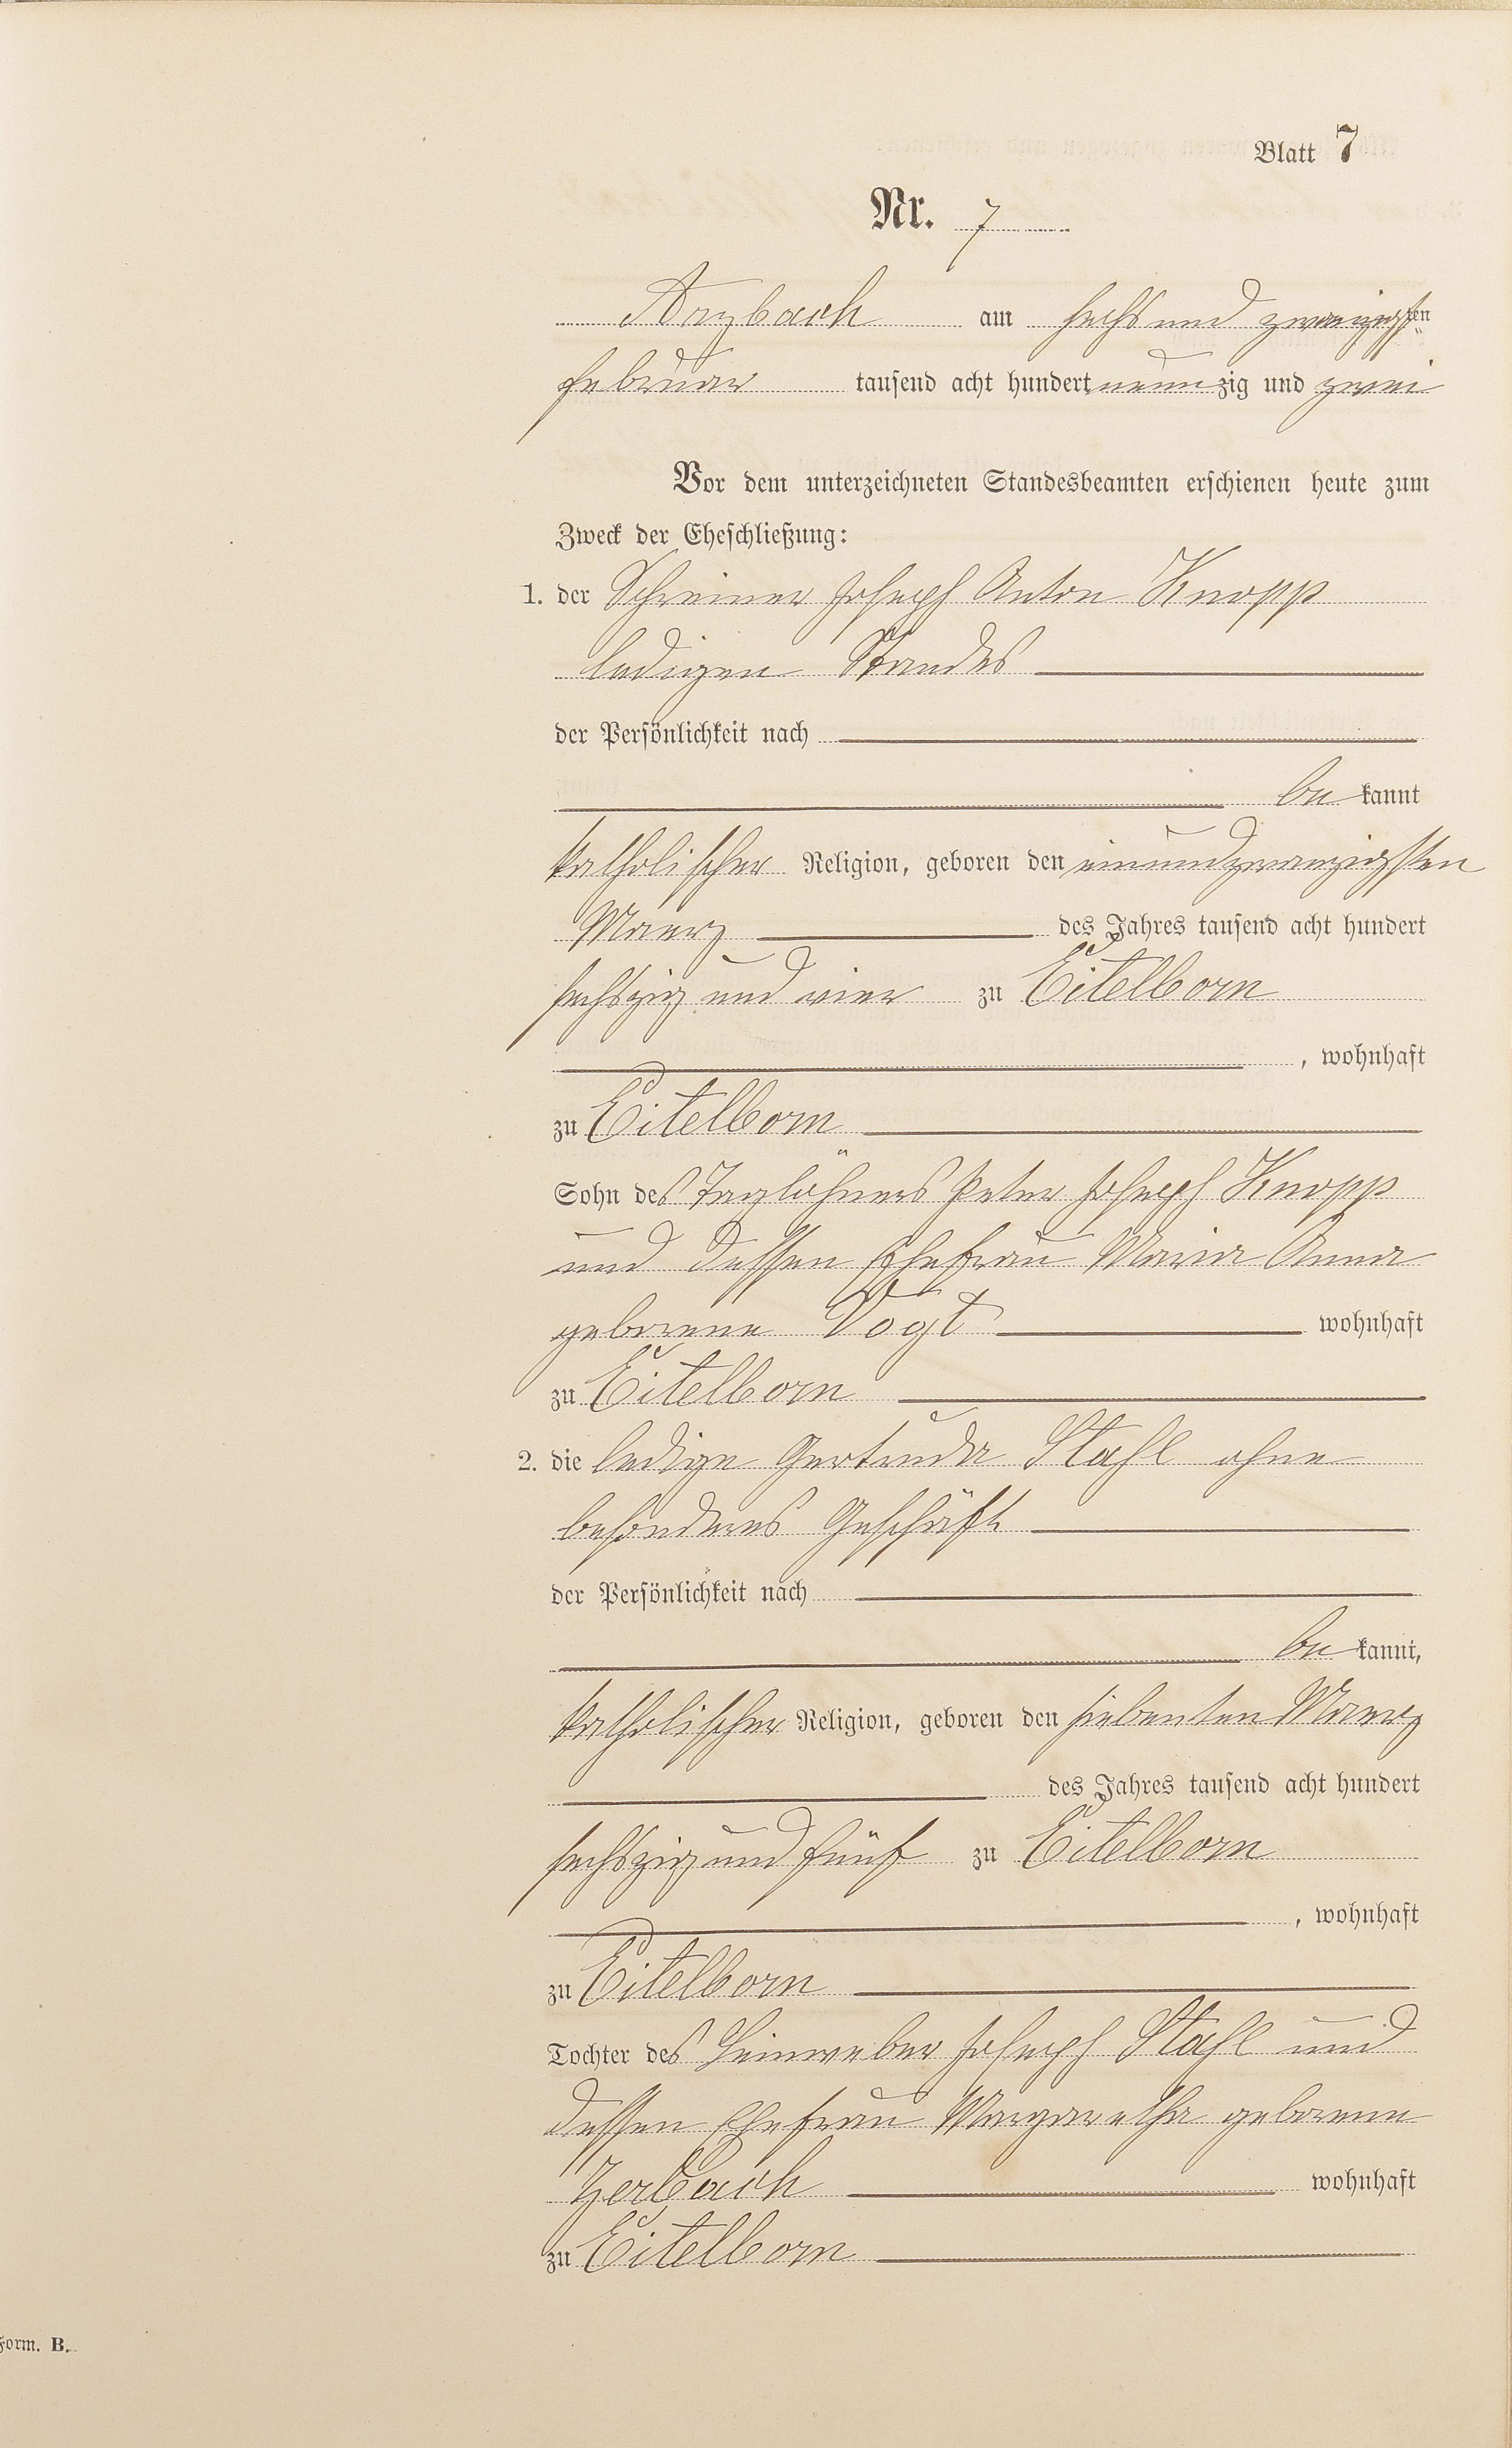 Blatt 7
Nr. 7
Arzbach am sechsundzwanzigsten
Februar tausend acht hundert neunzig und zwei
Vor dem unterzeichneten Standesbeamten erschienen heute zum
Zweck der Eheschließung:
1. der Schreiner Joseph Anton Knopp
ledigen Standes
der Persönlichkeit nach
be kannt
katholischer Religion, geboren den einundzwanzigsten
Maerz des Jahres tausend acht hundert
sechszig und vier zu Eitelborn
, wohnhaft
zu Eitelborn
Sohn des Taglöhners Peter Joseph Knopp
und dessen Ehefrau Maria Anna
geborene Vogt wohnhaft
zu Eitelborn
2. die ledige Gertruda Stahl ohne
besonderes Geschäft
der Persönlichkeit nach
be kannt,
katholischer Religion, geboren den siebenten Maerz
des Jahres tausend acht hundert
sechszig und fünf zu Eitelborn
, wohnhaft
zu Eitelborn
Tochter des Leinweber Joseph Stahl und
dessen Ehefrau Margaretha geborene
Zerbach wohnhaft
zu Eitelborn
Form. B.